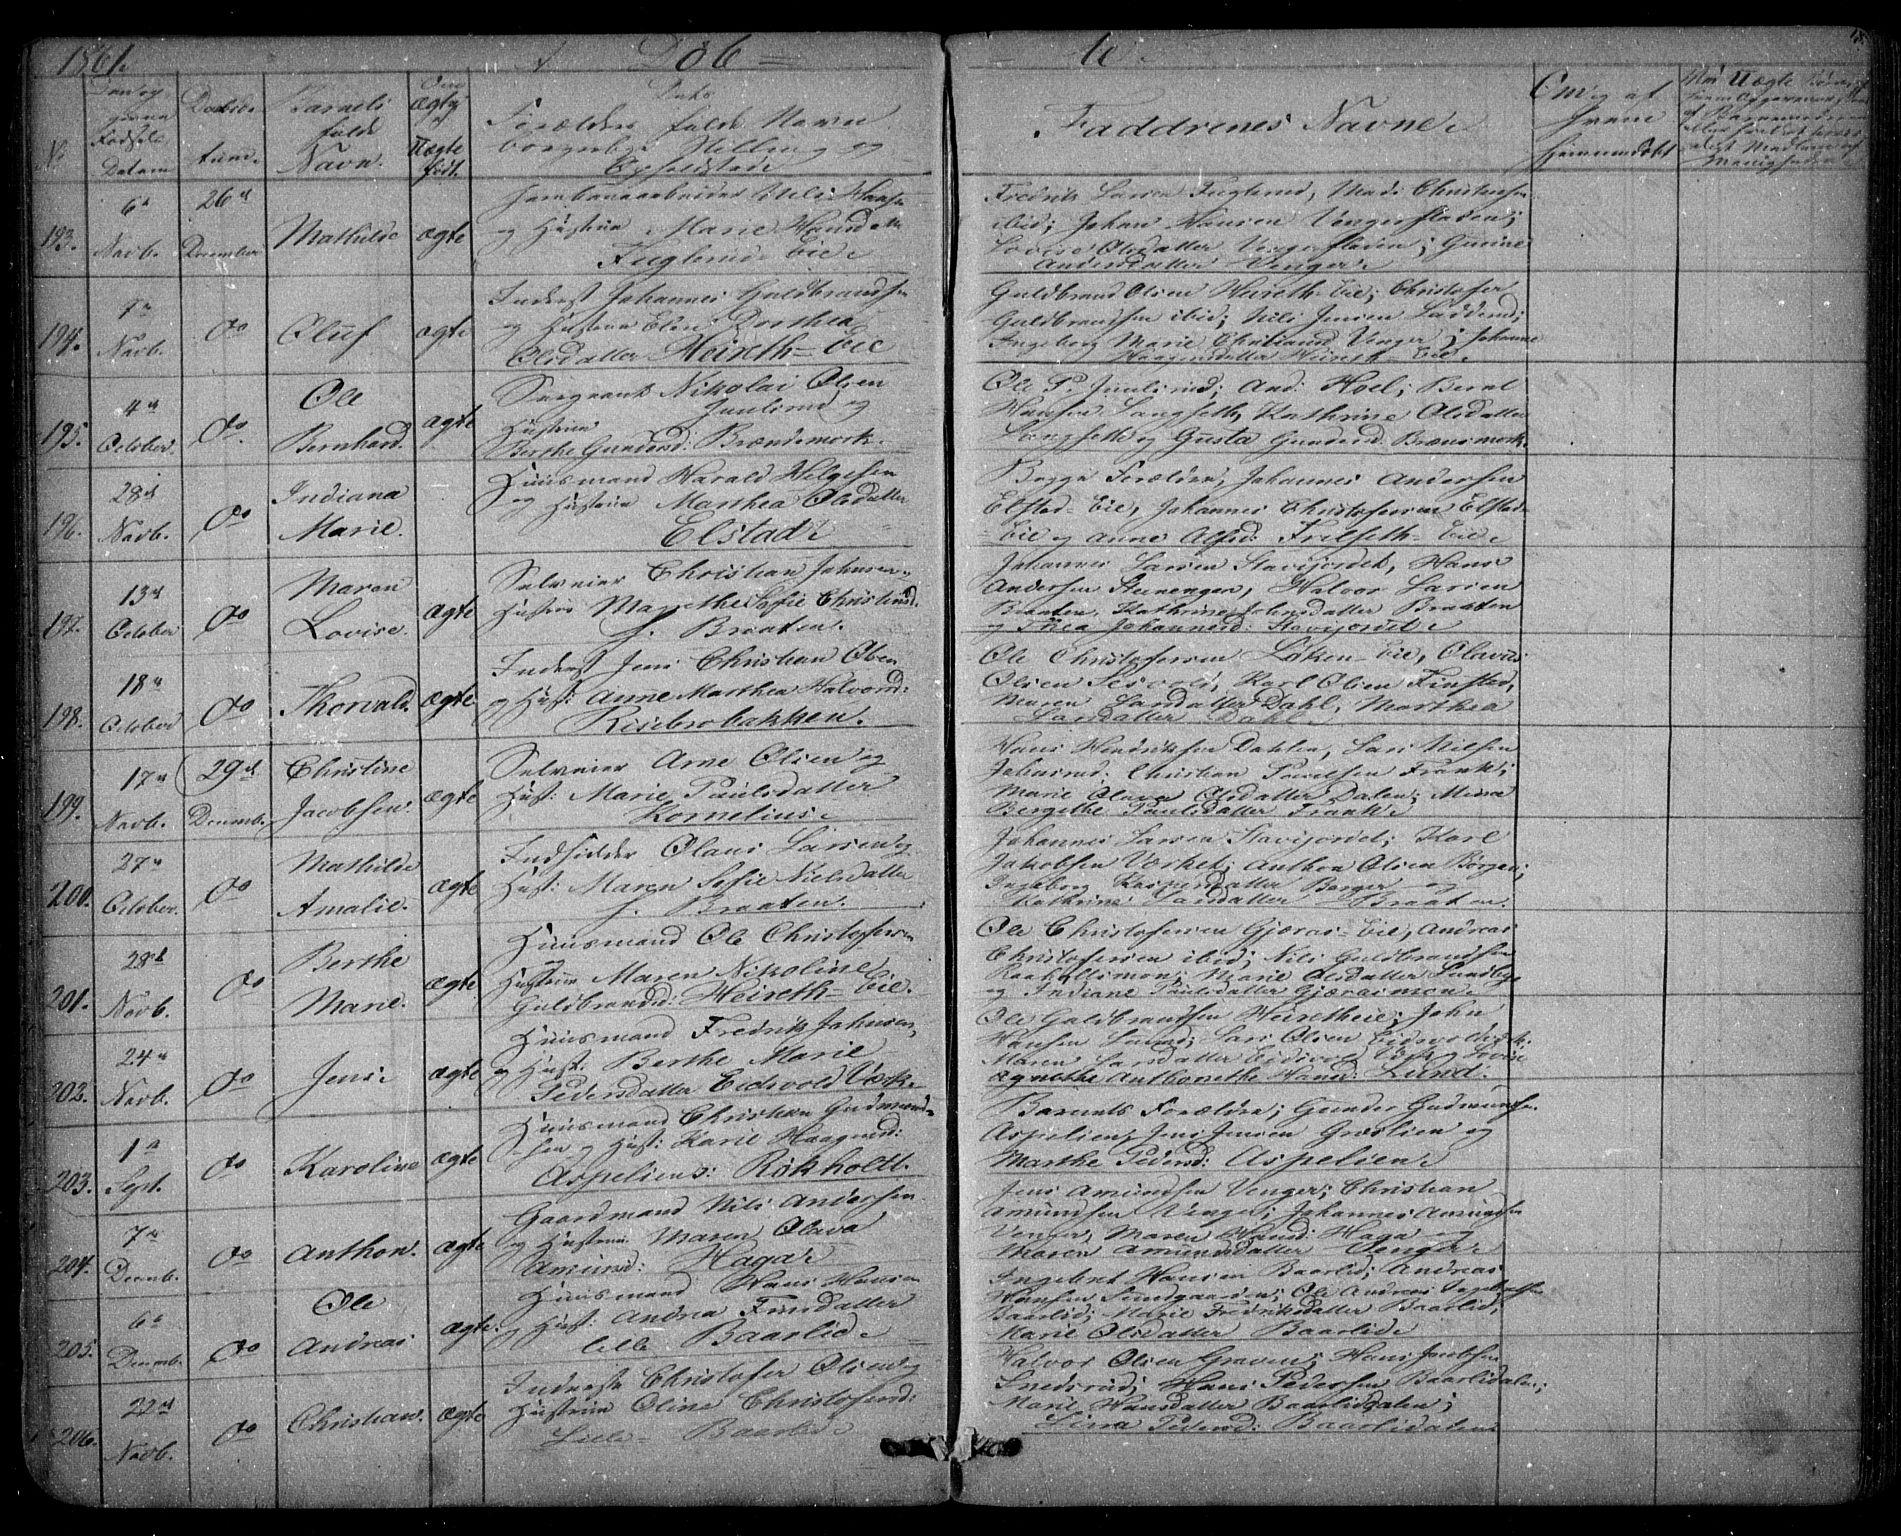 1861.
Døb
te.
No
Fødsels
Datum
Barnets
fulde
Navn.
Ægte
Uægte
født.
Forældres fulde Navn
borgerlige Stilling og
Opholdsted
Faddrenes Navne.
Om og af
hvem
hjemmedøbt
193.
6te
Novb.
26de
December
Mathilde
ægte
Jernbanearbeider Nils Hansen
og Hustru Marie Hansdatter
Fuglerud Eie.
Fredrik Larsen Fuglerud, Mads Christensen
ibid; Johan Hansen Vengerstaden;
Lovise Olsdatter Vengerstaden; Gurine
Andersdatter Venger.
194.
Novb.
do
Oluf
ægte
Inderst Johannes Guldbrandsen
og Hustru Eline Dorthea
Olsdatter Heireth-Eie
Guldbrand Olsen Heireth-Eie; Christofer
Guldbrandsen ibid; Nils Jensen Ladderud;
Ingeborg Marie Christiansd Venger; Johanne
Haagensdatter Heireth-Eie.
195.
4de
October
do
Ole
Bernhard
ægte
Sergeant Nikolai Olsen
Juulsrud og
Hustru
Berthe Gundersd: Brændsmork.
Ole P. Juulsrud; And: Hoel; Bernt
Hansen Langseth, Kathrine Olsdatter
Langseth og Gusta Gundersd. Brænsmork.
196.
28de
Novb.
do
Indiana
Marie.
Huusmand Harald Helgesen
og Hustru Marthea Olsdatter
Elstad.
Begge Forældre, Johannes Andersen
Elstad-Eie, Johannes Christofersen Elstad-
Eie og Anne Alfsd: Frilseth-Eie.
197.
13de
October
do
Maren
Lovise.
ægte
Selveier Christian Johnsen,
Hustru Marethe Sofie Christensd.
Braaten.
Johannes Larsen Stavijordet, Hans
Andersen Steenenger, Halvor Larsen
Braaten, Kathrine Jensdatter Braaten
og Thea Johannesd: Stavijordet.
198.
18de
October
do
Thorvald.
ægte
Inderst Jens Christian Olsen
og Hust: Anne Marthea Halvorsd:
Risebrobakken.
Ole Christofersen Løken-Eie, Olavus
Olsen Sesvold, Karl Olsen Finstad,
Maren Larsdatter Dahl, Marthea
Larsdatter Dahl.
199.
17de
Novb.
29de
Decemb.
Christine
Jacobsen.
ægte
Selveier Arne Olsen og
Hust: Marie Paulsdatter
Kornelius.
Hans Hendriksen Dahlen, Lars Nilsen
Johnsrud; Christian Paulsen Frank;
Marie Olava Olsdatter Dalen; Mina
Bergithe Paulsdatter Frank.
200.
27de
October.
do
Mathilde
Amalie.
ægte
Indsidder Olaus Larsen og
Hust: Maren Sofie Nielsdatter
Braaten.
Johannes Larsen Stavijordet; Karl
Jakobsen Værket; Anthon Olsen Børger;
Ingeborg Kaspersdatter Børger og
Kathrine Larsdatter Braaten.
201.
28de
Novb.
do
Berthe
Marie.
ægte
Huusmand Ole Christofersen
Hustru Maren Nikoline
Guldbrandsd: Heireth-Eie.
Ole Christofersen Gjæras-Eie, Andreas
Christofersen ibid; Nils Guldbrandsen
Raaholtsmoen; Marie Olsdatter Lundby
og Indiane Paulsdatter Gjærasmoen.
202.
24de
Novb.
do
Jens.
ægte
Huusmand Fredrik Johnsen,
og Hust: Berthe Marie
Pedersdatter Eidsvold Værk.
Ole Guldbrandsen Heiretheie; John
Hansen Lund; Lars Olsen Eidsvoldværk;
Maren Larsdatter Eidsvold Værk og Lovise
Agnethe Anthonethe Hansd: Lund.
203.
1te
Sept.
do
Karoline
ægte
Huusmand Christian Gudmund-
sen og Hust: Karie Haagensd:
Aspelien s: Røkholdt.
Barnets Forældre; Gunder Gudmundsen
Aspelien, Jens Jensen Græslien og
Marthe Pedersd: Aspelien.
204.
7de
Decemb.
do
Anthon.
ægte
Gaardmand Nils Andersen
og Hustru Maren Olava
Amundsd: Haga.
Jens Amundsen Venger; Christian
Amundsen Venger; Johannes Amundsen
Venger, Maren Hansd: Haga og
Maren Amundsdatter Venger.
205.
6te
Decemb.
do
Ole
Andreas
ægte.
Huusmand Hans Hansen
og Hust: Andrea Finsdatter
lille Baarlid.
Ingebret Hansen Baarlid; Andreas
Hansen Sundgaarden; Ole Andreas Ingebretsen
Baarlid; Marie Fredriksdatter Baarlid,
Marie Olsdatter Baarlid.
206.
22de
Novb.
do
Christian.
ægte
Inderste Christofer Olsen og
Hustru Oline Christofersd:
Lille-Baarlid.
Halvor Olsen Graven; Hans Jacobsen
Snedsrud; Hans Pedersen Baarlidalen;
Marie Hansdatter Baarlidalen;
Lina Pedersd: Baarlidalen.